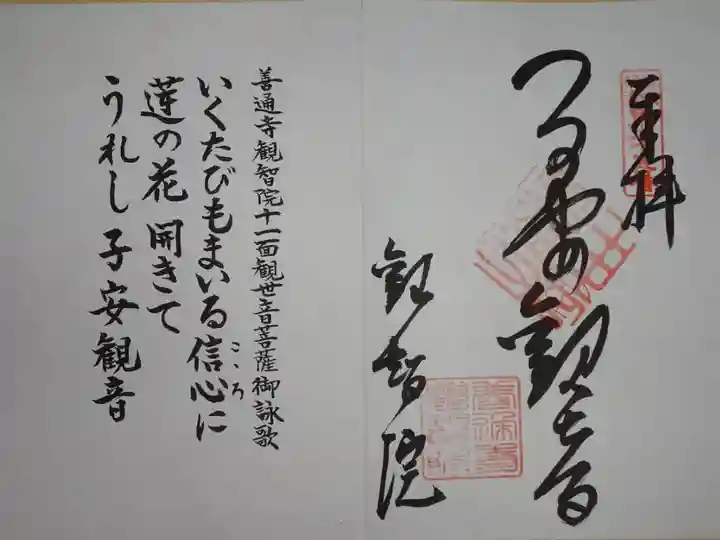 奉拝
観世音
観智院
善通寺観智院十一面観世音菩薩御詠歌
いくたびもまいる信心に
こゝろ
蓮の花開きて
うれし子安観音